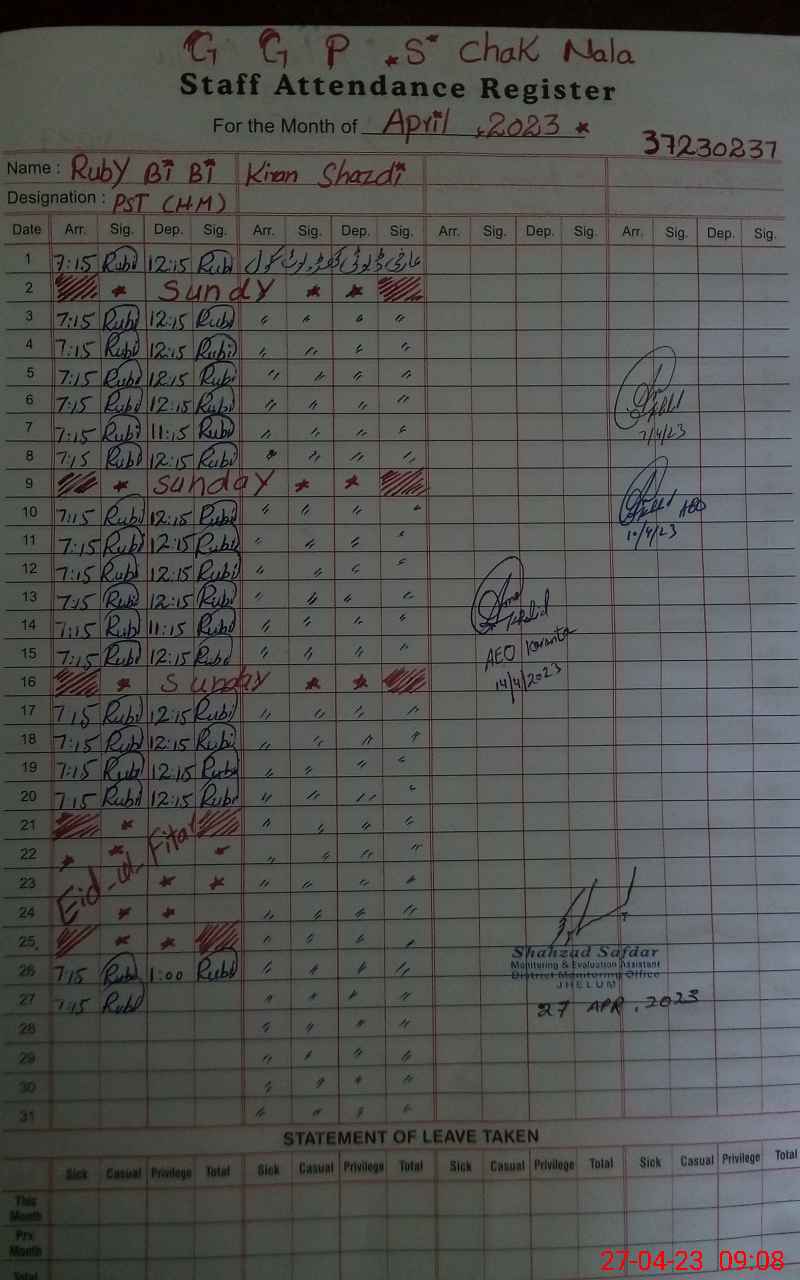 G G P .S Chak Nala
Staff Attendance Register
For the Month of April, 2023
37230237
Name : Ruby Bi Bi Kiran Shazdi
Designation : PST (H.M)
Date Arr. Sig. Dep. Sig. Arr. Sig. Dep. Sig. Arr. Sig. Dep. Sig. Arr. Sig. Dep. Sig.
1 7:15 Rubi 12:15 Rubi عارضی ڈیوٹی
2 Sundy
3 7:15 Rubi 12:15 Rubi 〃 〃 〃 〃
4 7:15 Rubi 12:15 Rubi 〃 〃 〃 〃
5 7:15 Rubi 12:15 Rubi 〃 〃 〃 〃
6 7:15 Rubi 12:15 Rubi 〃 〃 〃 〃
7 7:15 Rubi 11:15 Rubi 〃 〃 〃 〃 7/4/23
8 7:15 Rubi 12:15 Rubi 〃 〃 〃 〃
9 Sunday
10 7:15 Rubi 12:15 Rubi 〃 〃 〃 〃 AEO
11 7:15 Rubi 12:15 Rubi 〃 〃 〃 〃 10/4/23
12 7:15 Rubi 12:15 Rubi 〃 〃 〃 〃
13 7:15 Rubi 12:15 Rubi 〃 〃 〃 〃
14 7:15 Rubi 11:15 Rubi 〃 〃 〃 〃 Khalid
15 7:15 Rubi 12:15 Rubi 〃 〃 〃 〃 AEO
16 Sunday 14/4/2023
17 7:15 Rubi 12:15 Rubi 〃 〃 〃 〃
18 7:15 Rubi 12:15 Rubi 〃 〃 〃 〃
19 7:15 Rubi 12:15 Rubi 〃 〃 〃 〃
20 7:15 Rubi 12:15 Rubi 〃 〃 〃 〃
21 〃 〃 〃 〃
22 Eid-ul-Fitar 〃 〃 〃 〃
23 〃 〃 〃 〃
24 〃 〃 〃 〃
25 〃 〃 〃 〃
Shahzad Safdar
Monitoring & Evaluation Assistant
District Monitoring Office
JHELUM
26 7:15 Rubi 1:00 Rubi 〃 〃 〃 〃
27 7:15 Rubi 〃 〃 〃 〃 27 APR. 2023
28 〃 〃 〃 〃
29 〃 〃 〃 〃
30 〃 〃 〃 〃
31 〃 〃 〃 〃
STATEMENT OF LEAVE TAKEN
Sick Casual Privilege Total Sick Casual Privilege Total Sick Casual Privilege Total Sick Casual Privilege Total
This Month
Prv Month
Total
27-04-23 09:08